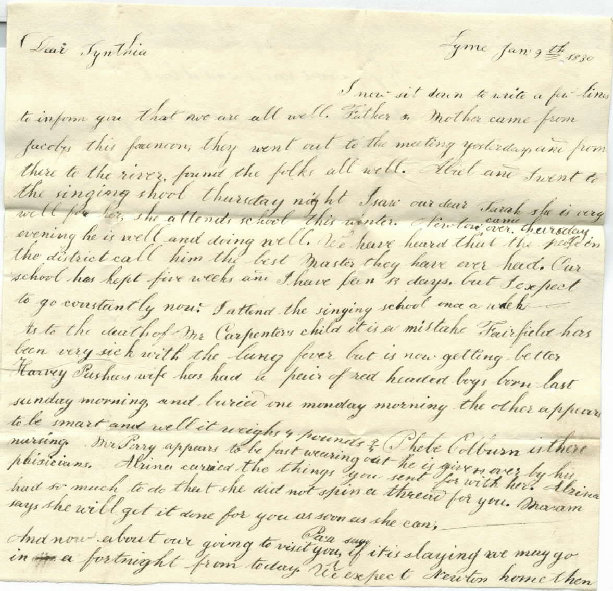 Dear Synthia Lyme Jan 9th 1830
I now sit down to write a few lines
to inform you that we are all well. Father & Mother came from
Jacobs this forenoon, they went out to the meeting yesterday, and from
there to the river, found the folks all well. and I went to
the singing shool thursday night I saw our dear Sarah she is very
well for her, she attends school this winter. Newton came over thursday
evening he is well and doing well. We have heard that the people in
the district call him the best Master they have ever had. Our
school has kept five weeks and I have been 13 days. but I expect
to go constantly now. I attend the singing school once a week
As to the death of Mr Carpenters child it is a mistake Fairfield has
been very sick with the lung fever but is now getting better
Harvey Pushees wife has had a pair of red headed boys born last
sunday morning and buried one monday morning the other appears
to be smart and well it weighs 4 pounds & Phebe Colburn is there
nursing. Mr Perry appears to be fast wearing out he is given over by his
phisicians. Alzina carried the things you sent for with her. Alzina
had so much to do that she did not spin a thread for you. Maram
says she will get it done for you as soon as she can,
And now about our going to visit you, Para says if it is slaying we may go
in a fortnight from today. We expect Newton home then